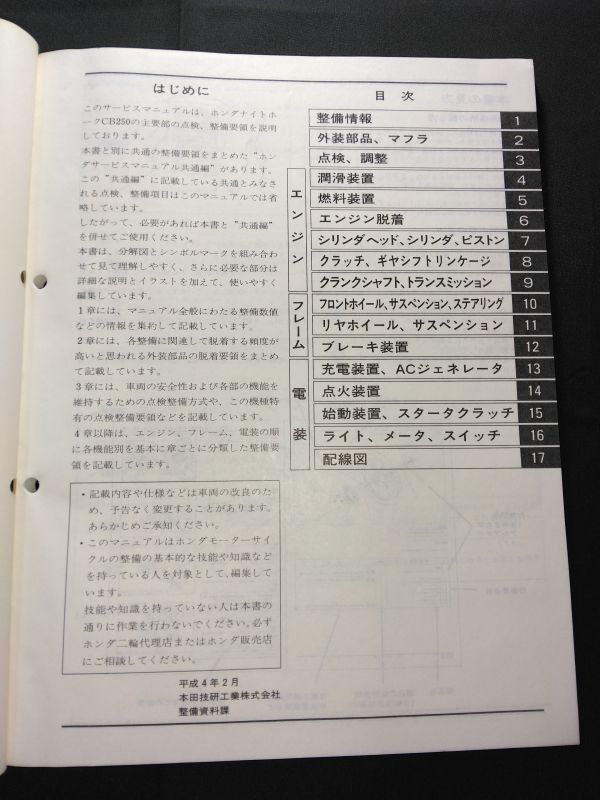 はじめに
このサービスマニュアルは、ホンダナイトホ
ークCB250の主要部の点検、整備要領を説明
しております。
本書と別に共通の整備要領をまとめた“ホン
ダサービスマニュアル共通編”があります。
この“共通編”に記載している共通とみなさ
れる点検、整備項目はこのマニュアルでは省
略しています。
したがって、必要があれば本書と“共通編”
を併せてご使用ください。
本書は、分解図とシンボルマークを組み合わ
せて見て理解しやすく、さらに必要な部分は
詳細な説明とイラストを加えて、使いやすく
編集しています。
1章には、マニュアル全般にわたる整備数値
などの情報を集約して記載しています。
2章には、各整備に関連して脱着する頻度が
高いと思われる外装部品の脱着要領をまとめ
て記載しています。
3章には、車両の安全性および各部の機能を
維持するための点検整備方式や、この機種特
有の点検整備要領などを記載しています。
4章以降は、エンジン、フレーム、電装の順
に各機能別を基本に章ごとに分類した整備要
領を記載しています。
・記載内容や仕様などは車両の改良のた
め、予告なく変更することがあります。
あらかじめご承知ください。
・このマニュアルはホンダモーターサイ
クルの整備の基本的な技能や知識など
を持っている人を対象として、編集して
います。
技能や知識を持っていない人は本書の
通りに作業を行わないでください。必ず
ホンダ二輪代理店またはホンダ販売店
にご相談してください。
平成4年2月
本田技研工業株式会社
整備資料課
目 次
整備情報 1
外装部品、マフラ 2
点検、調整 3
エンジン
潤滑装置 4
燃料装置 5
エンジン脱着 6
シリンダヘッド、シリンダ、ピストン 7
クラッチ、ギヤシフトリンケージ 8
クランクシャフト、トランスミッション 9
フレーム
フロントホイール、サスペンション、ステアリング 10
リヤホイール、サスペンション 11
ブレーキ装置 12
電装
充電装置、ACジェネレータ 13
点火装置 14
始動装置、スタータクラッチ 15
ライト、メータ、スイッチ 16
配線図 17